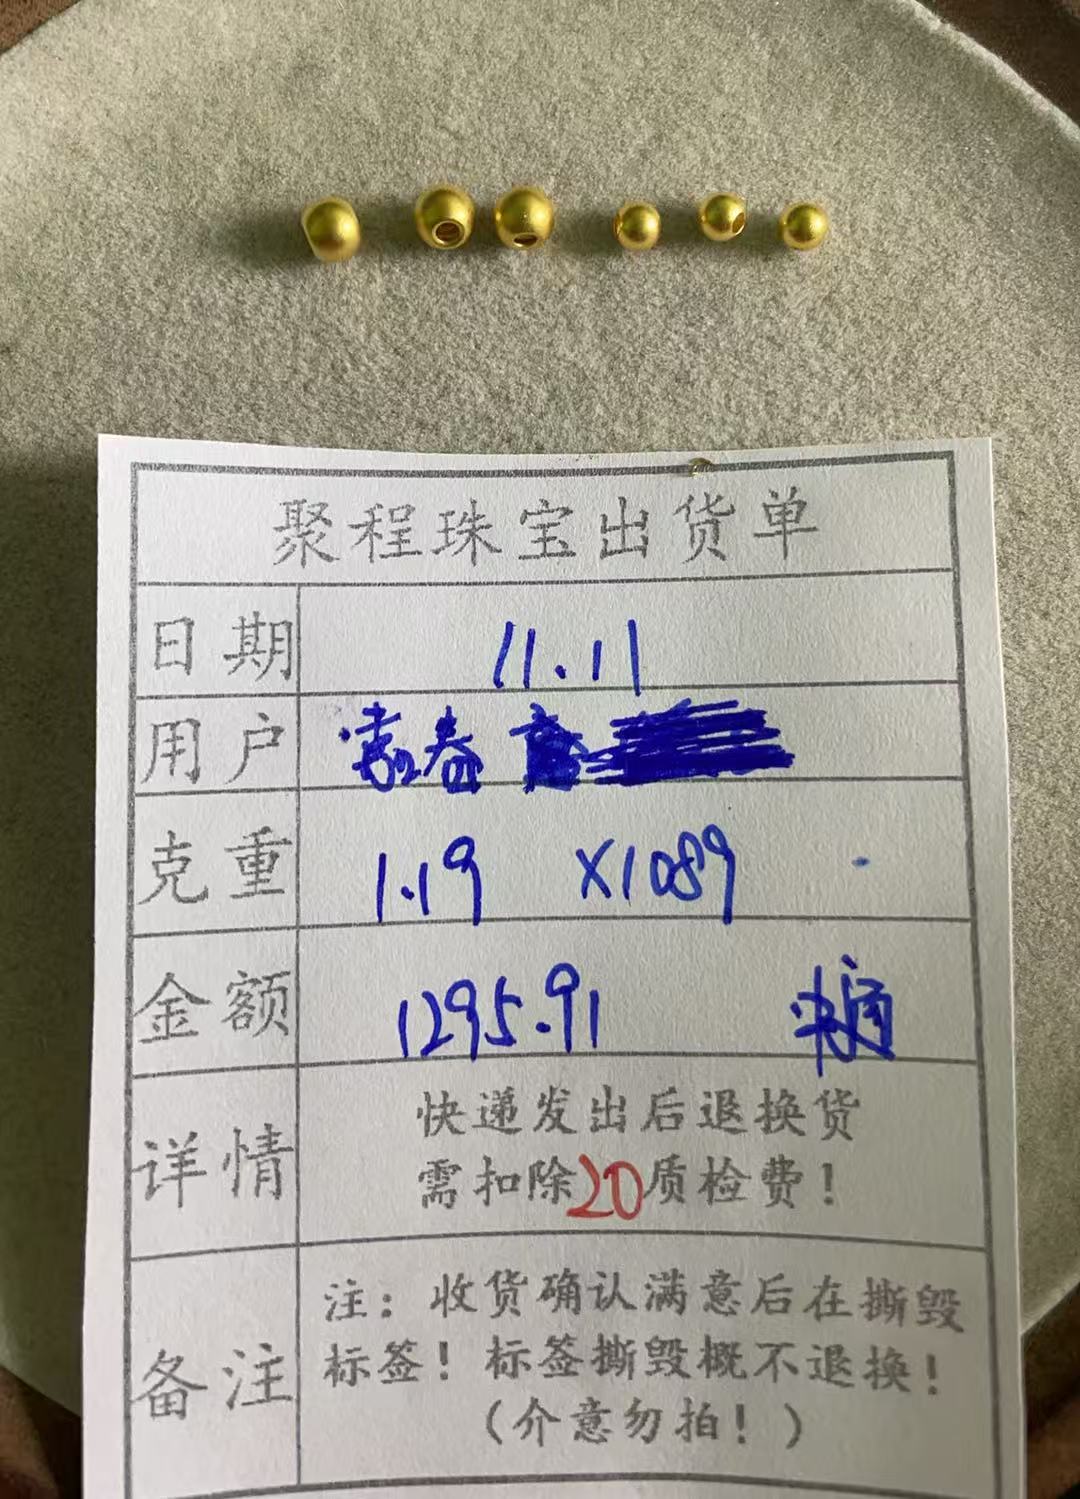 聚程珠宝出货单
日期 11.11
用户 青春
克重 1.19 X1089
金额 1295.91
详情 快递发出后退换货
需扣除20质检费！
备注 注：收货确认满意后在撕毁
标签！标签撕毁概不退换！
（介意勿拍！）